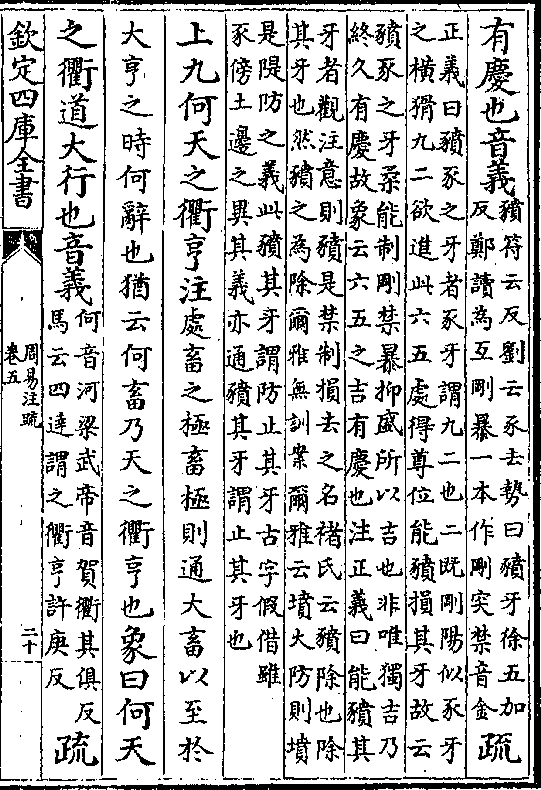 有慶也音義豶符云反劉云豕去勢曰豶牙徐五加
反鄭讀為互剛暴一本作剛突禁音金疏
正義曰豶豕之牙者豕牙謂九二也二既剛陽似豕牙
之横猾九二欲進此六五處得尊位能豶損其牙故云
豶豕之牙柔能制剛禁暴抑盛所以吉也非唯獨吉乃
終久有慶故象云六五之吉有慶也注正義曰能豶其
牙者觀注意則豶是禁制損去之名褚氏云豶除也除
其牙也然豶之為除爾雅無訓案爾雅云墳大防則墳
是隄防之義此豶其牙謂防止其牙古字假借雖
豕傍土邊之異其義亦通豶其牙謂止其牙也
上九何天之衢亨注處畜之極畜極則通大畜以至於
大亨之時何辭也猶云何畜乃天之衢亨也象曰何天
之衢道大行也音義何音河梁武帝音賀衢其俱反
馬云四達謂之衢亨許庚反疏
欽定四庫全書
周易注疏
卷五
二十